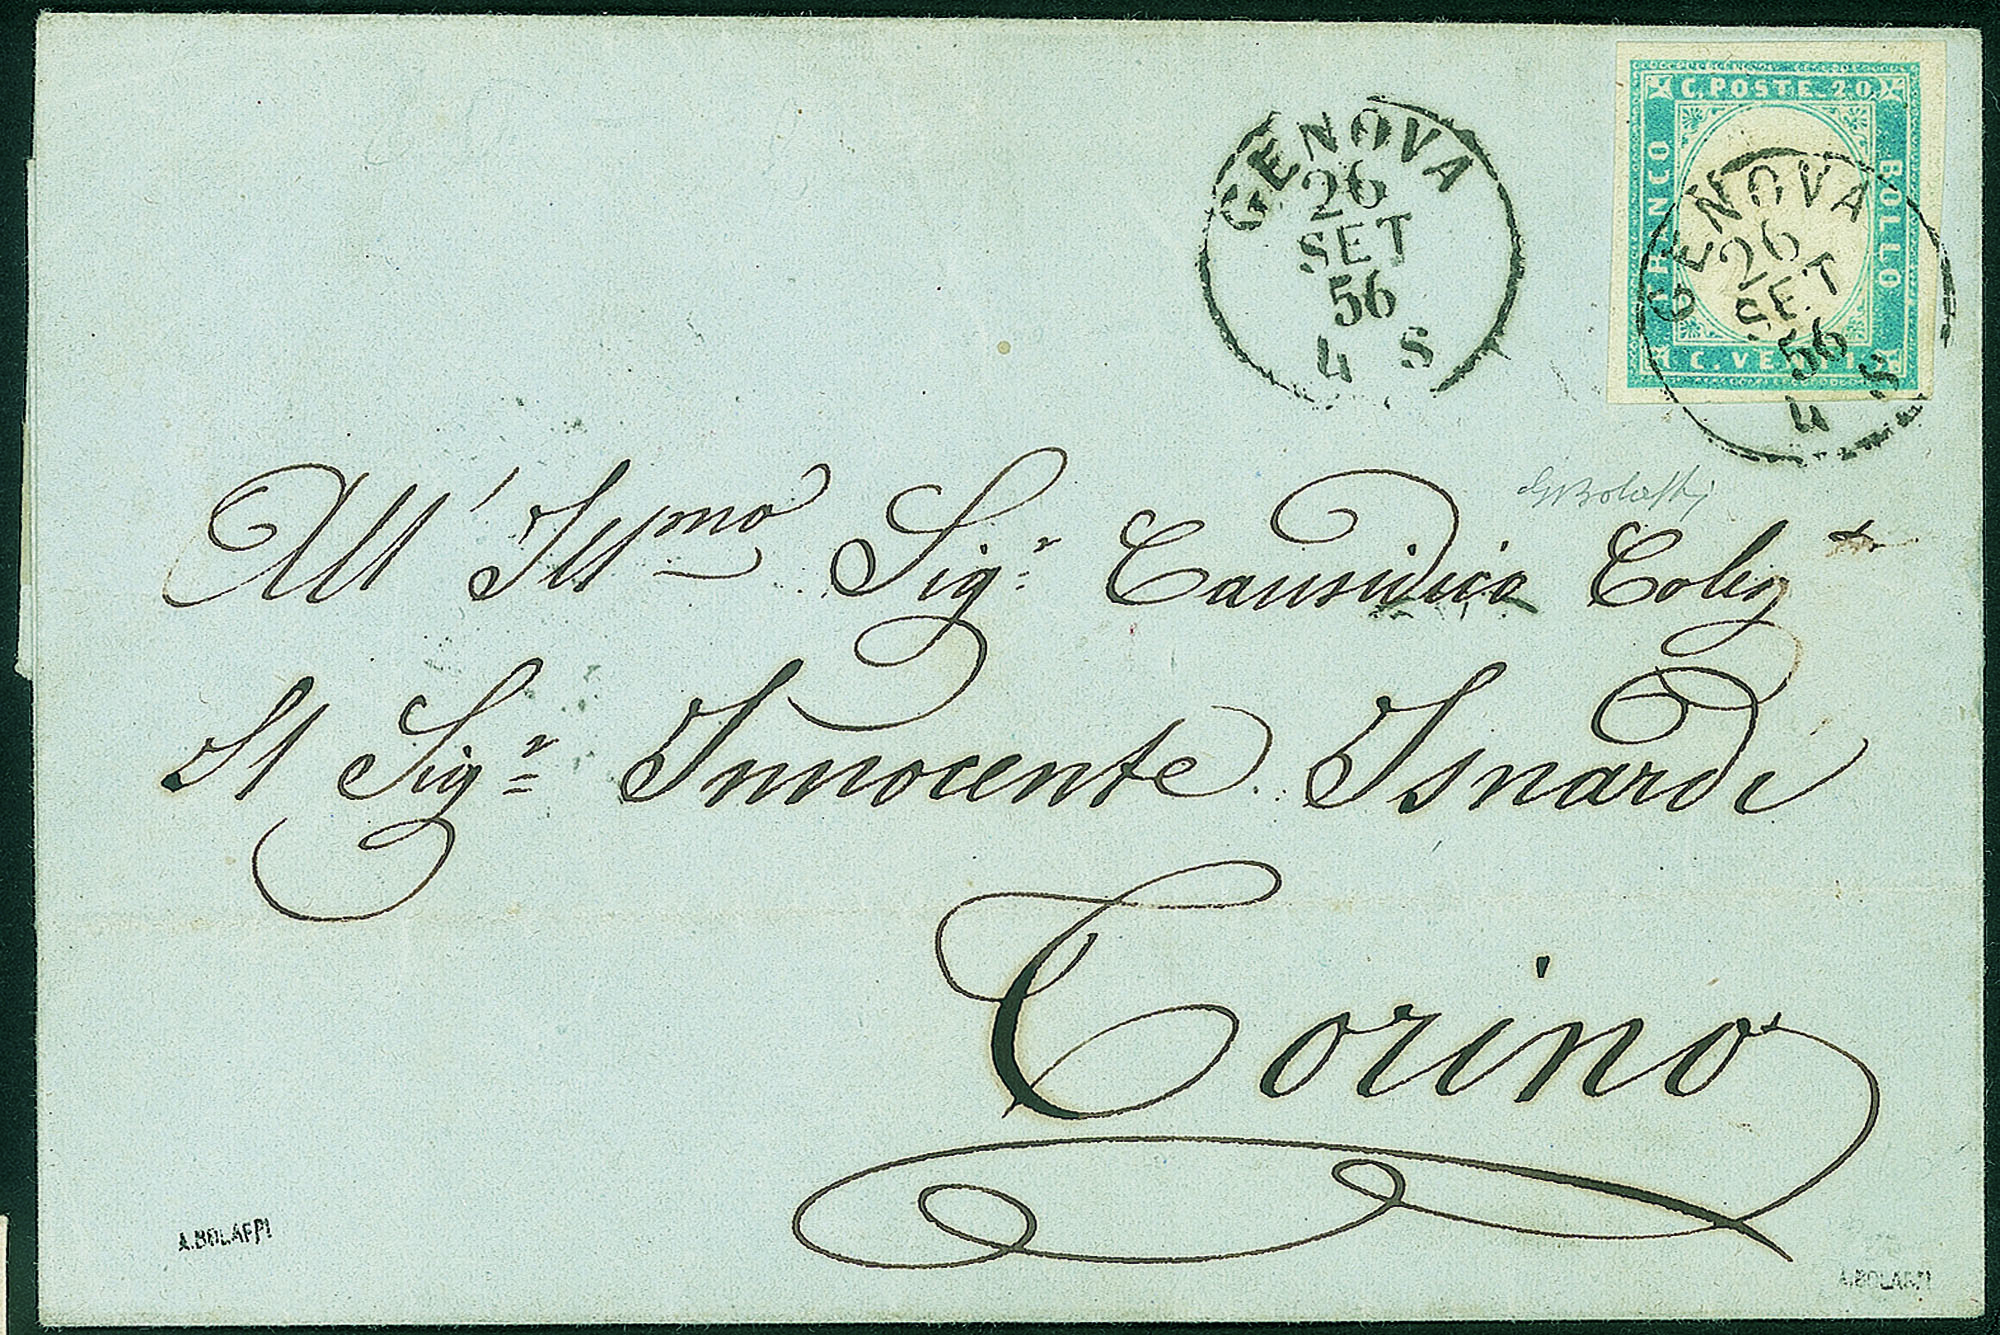 GENOVA
26
SET
56
4 S
C. POSTE 20
FRANCO
BOLLO
C. VENTI
GENOVA
26
SET
56
4 S
All' Illmo Sigr Causidico
Il Sigr Innocente Isnardi
Torino
A.BOLAFFI
A.BOLAFFI